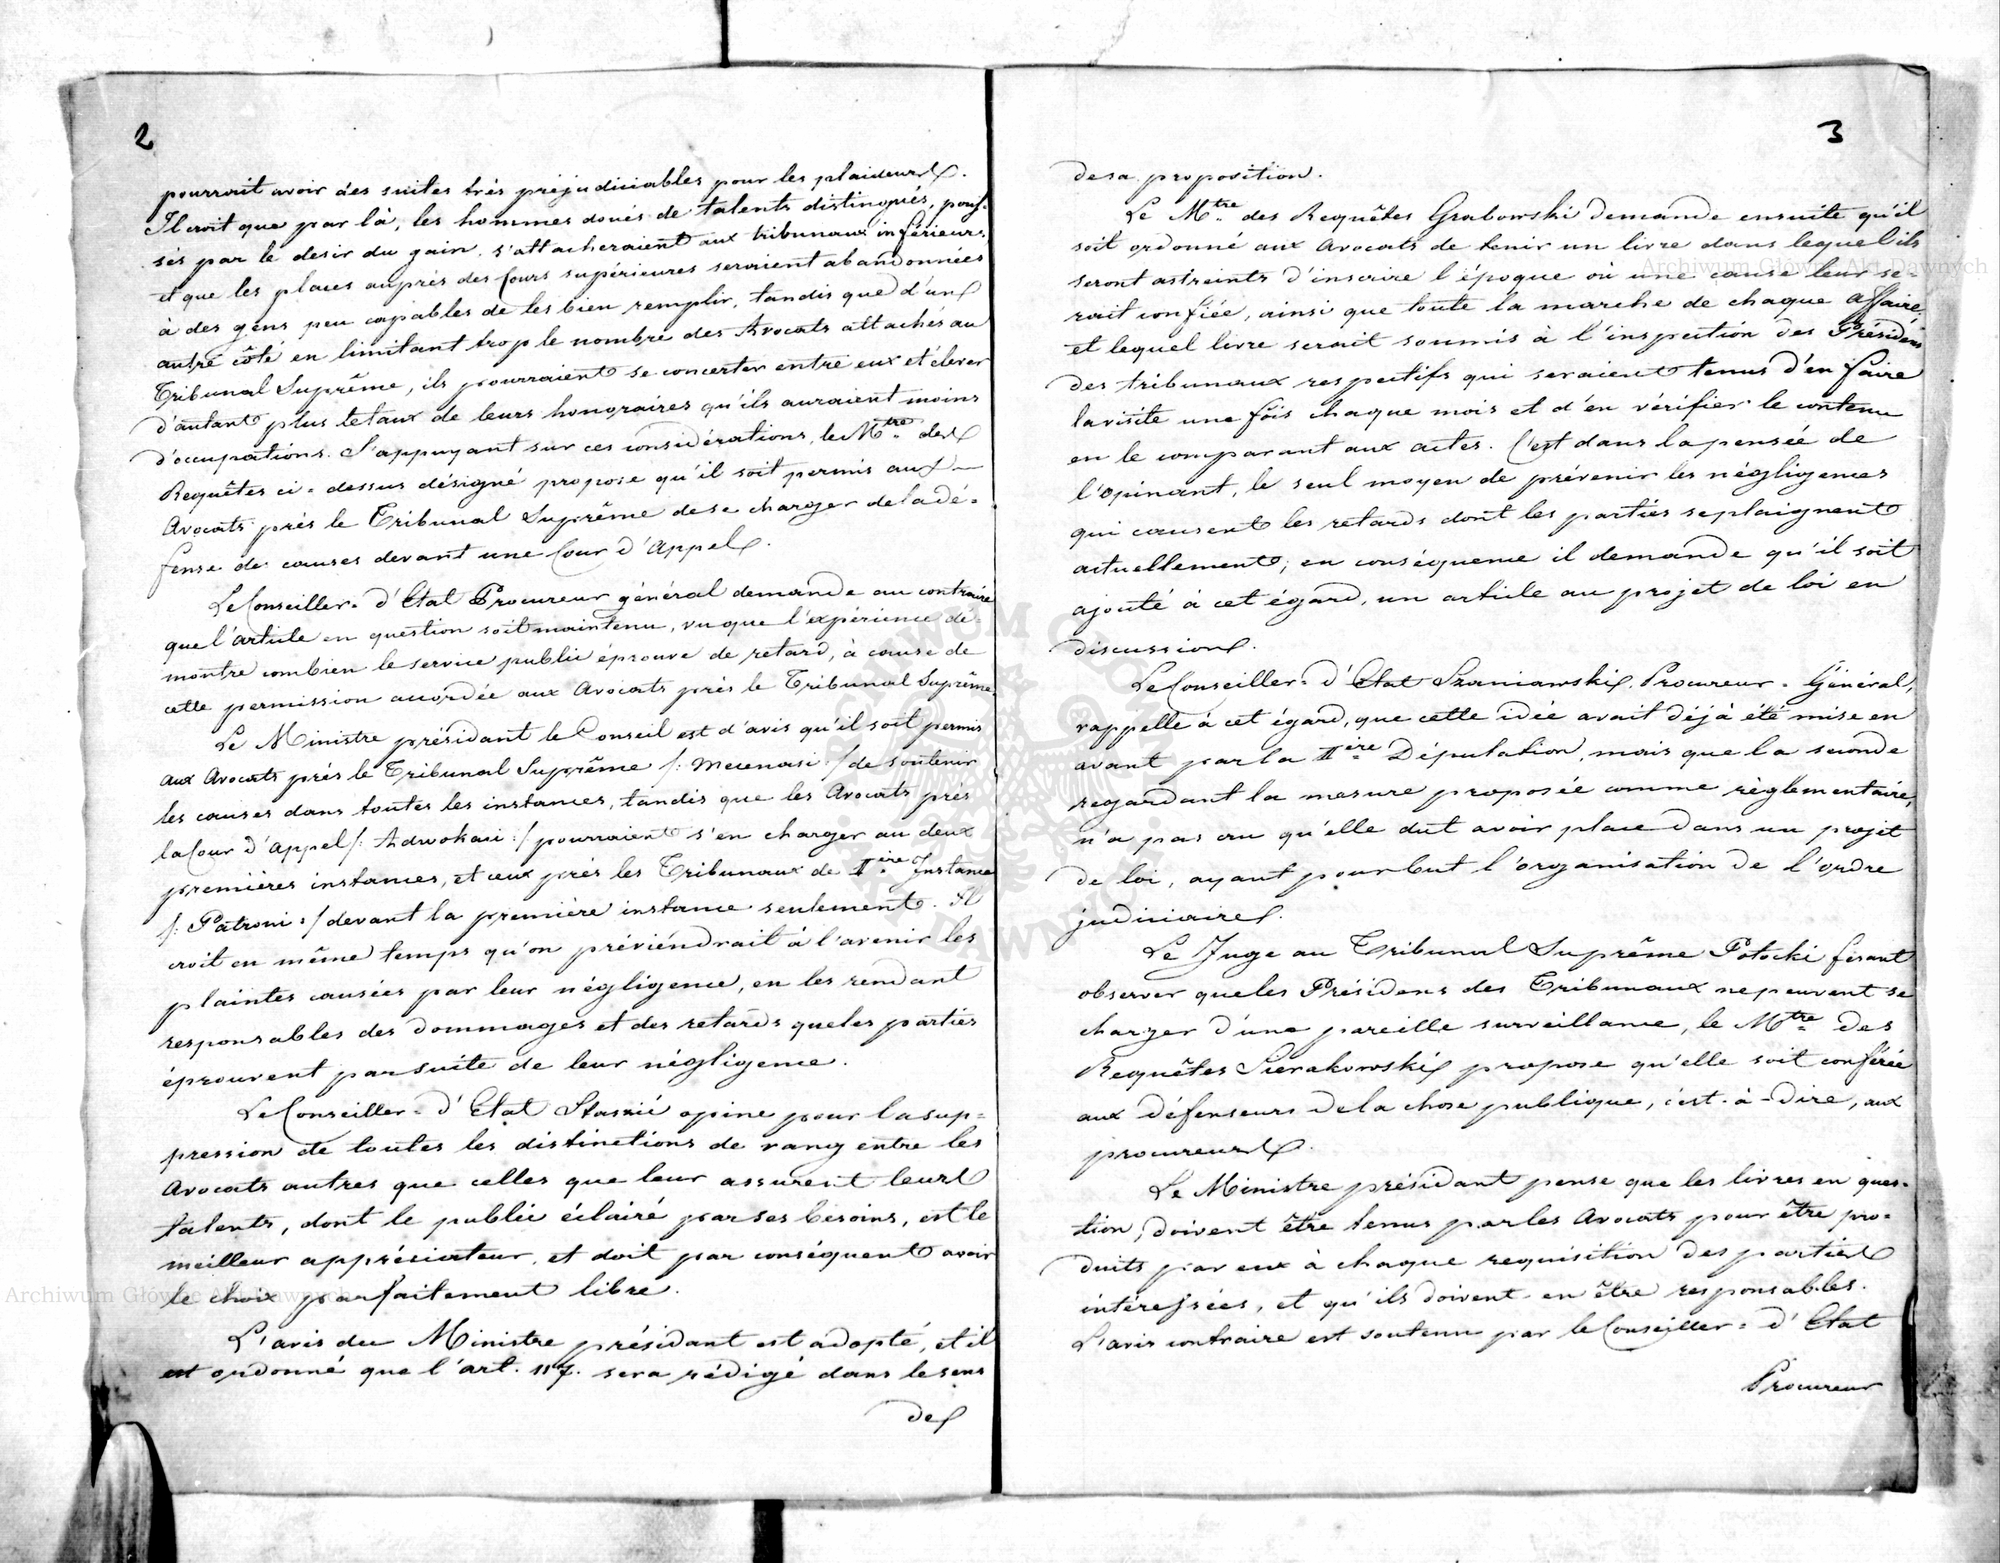 2
pourrait avoir des suites très préjudiciables pour les plaideurs.
Il croit que par là, les hommes doués de talents distingués, pous-
sés par le desir du gain, s'attacheraient aux tribunaux inférieurs,
et que les places auprès des Cours supérieures seraient abandonnées
à des gens peu capables de les bien remplir, tandis que d'un
autre côté en limitant trop le nombre des Avocats attachés au
Tribunal Suprême, ils pourraient se concerter entre eux et élever
d'autant plus le taux de leurs honoraires qu'ils auraient moins
d'occupations. S'appuyant sur ces considérations, le Mtre des
Requêtes ci-dessus désigné propose qu'il soit permis aux
Avocats près le Tribunal Suprême de se charger de la dé-
fense de causes devant une Cour d'Appel.
Le Conseiller-d'Etat Procureur général demande au contraire
que l'article en question soit maintenu, vu que l'expérience dé-
montre combien le service public éprouve de retard, à cause de
cette permission accordée aux Avocats près le Tribunal Suprême.
Le Ministre présidant le Conseil est d'avis qu'il soit permis
aux Avocats près le Tribunal Suprême /: Mecenasi :/ de soutenir
les causes dans toutes les instances, tandis que les Avocats près
la Cour d'Appel /: Adwokaci :/ pourraient s'en charger au deux
premières instances, et ceux près les Tribunaux de Iière Instance
/: Patroni :/ devant la première instance seulement. Il
croit en même temps qu'on préviendrait à l'avenir les
plaintes causées par leur négligence, en les rendant
responsables des dommages et des retards que les parties
éprouvent par suite de leur négligence.
Le Conseiller-d'Etat Staszić opine pour la sup-
pression de toutes les distinctions de rang entre les
Avocats autres que celles que leur assurent leurs
talents, dont le public éclairé par ses besoins, est le
meilleur appréciateur, et doit par conséquent avoir
le choix parfaitement libre.
L'avis du Ministre présidant est adopté, et il
est ordonné que l'art. 117. sera rédigé dans le sens
de
3
de sa proposition.
Le Mtre des Requêtes Grabowski demande ensuite qu'il
soit ordonné aux Avocats de tenir un livre dans lequel ils
seront astreints d'inscrire l'époque où une cause leur se-
rait confiée, ainsi que toute la marche de chaque affaire,
et lequel livre serait soumis à l'inspection des Présidens
des tribunaux respectifs qui seraient tenus d'en faire
la visite une fois chaque mois et d'en vérifier le contenu
en le comparant aux actes. C'est dans la pensée de
l'opinant, le seul moyen de prévenir les négligences
qui causent les retards dont les parties se plaignent
actuellement; en conséquence il demande qu'il soit
ajouté à cet égard, un article au projet de loi en
discussion.
Le Conseiller-d'Etat Szaniawski, Procureur-Général,
rappelle à cet égard, que cette idée avait déjà été mise en
avant par la Iière Députation, mais que la seconde
regardant la mesure proposée comme règlementaire,
n'a pas cru qu'elle dut avoir place dans un projet
de loi, ayant pour but l'organisation de l'ordre
judiciaire.
Le Juge au Tribunal Suprême Potocki fesant
observer que les Présidens des Tribunaux ne peuvent se
charger d'une pareille surveillance, le Mtre des
Requêtes Sierakowski propose qu'elle soit conférée
aux défenseurs de la chose publique, c'est-à-dire, aux
procureurs.
Le Ministre présidant pense que les livres en ques-
tion, doivent être tenus par les Avocats pour être pro-
duits par eux à chaque requisition des parties
intéressées, et qu'ils doivent en être responsables.
L'avis contraire est soutenu par le Conseiller-d'Etat
Procureur
Archiwum Główne Akt Dawnych
Archiwum Główne Akt Dawnych
ARCHIWUM GŁÓWNE AKT DAWNYCH